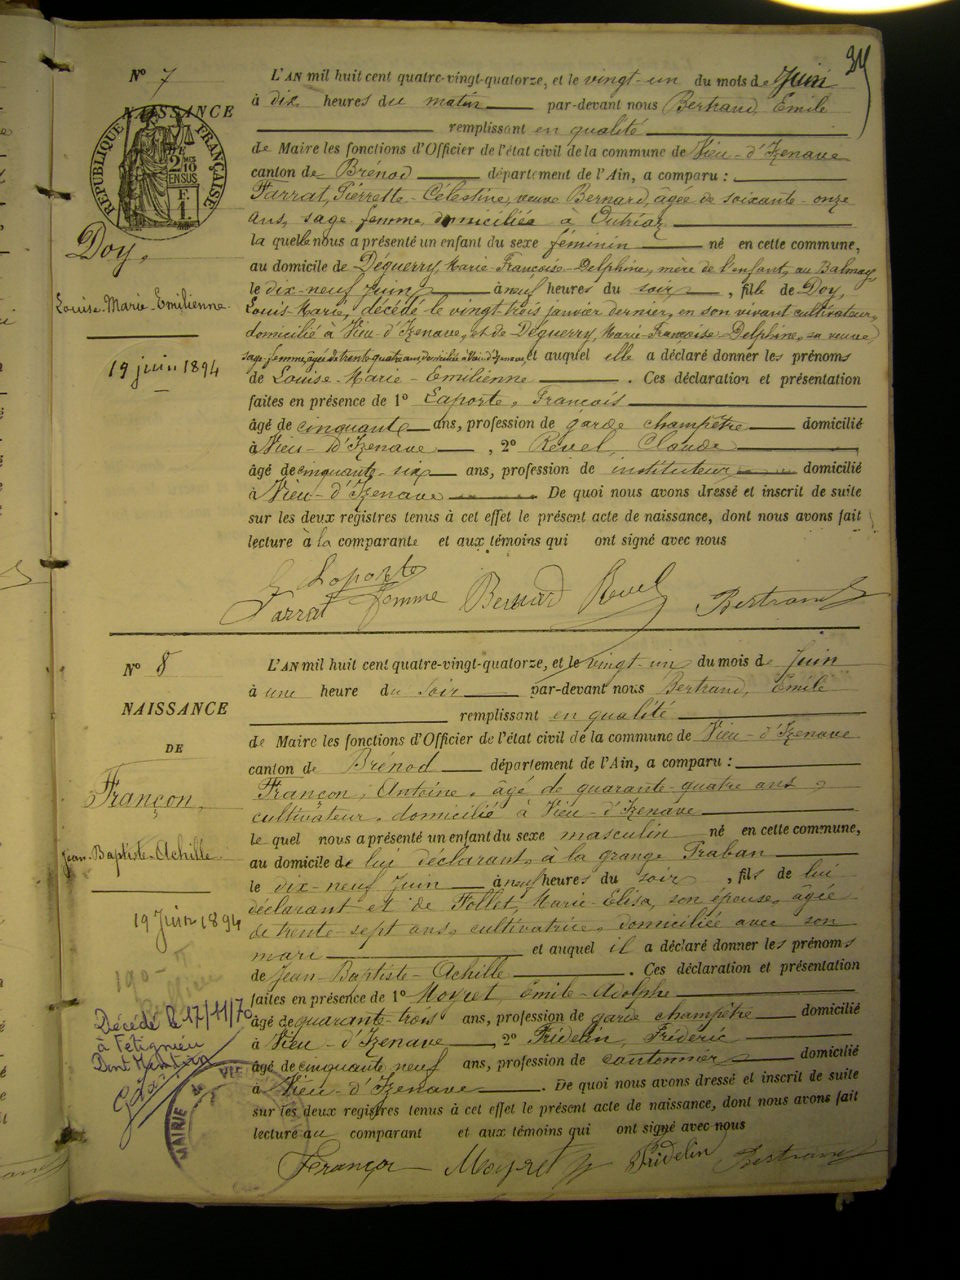 24
N° 7
NAISSANCE
RÉPUBLIQUE FRANÇAISE
2 DES 10
EN SUS
F.
1.
Doy,
Louise-Marie-Emilienne
19 juin 1894
L'AN mil huit cent quatre-vingt-quatorze, et le vingt-un du mois de Juin
à dix heures du matin par-devant nous Bertrand, Emile
remplissant en qualité
de Maire les fonctions d'Officier de l'état civil de la commune de Vieu-d'Izenave
canton de Brénod département de l'Ain, a comparu :
Farrat, Pierrette-Célestine, veuve Bernard, âgée de soixante-onze
ans, sage-femme, domiciliée à Outriaz
la quelle nous a présenté un enfant du sexe féminin né en cette commune,
au domicile de Déguerry, Marie-Françoise-Delphine, mère de l'enfant, au Balmay
le dix-neuf Juin à neuf heures du soir, fille de Doy,
Louis-Marie, décédé le vingt trois janvier dernier, en son vivant cultivateur,
domicilié à Vieu-d'Izenave, et de Déguerry, Marie-Françoise-Delphine, sa veuve
sage-femme, âgée de trente quatre ans, domiciliée à Vieu-d'Izenave, et auquel elle a déclaré donner les prénoms
de Louise-Marie-Emilienne. Ces déclaration et présentation
faites en présence de 1° Laporte, François
âgé de cinquante ans, profession de garde champêtre domicilié
à Vieu-D'Izenave, 2° Revel, Claude
âgé de cinquante-six ans, profession de instituteur domicilié
à Vieu-d'Izenave De quoi nous avons dressé et inscrit de suite
sur les deux registres tenus à cet effet le présent acte de naissance, dont nous avons fait
lecture à la comparante et aux témoins qui ont signé avec nous
Laporte
Farrat femme Bernard Revel Bertrand
N° 8
NAISSANCE
DE
Françon,
Jean-Baptiste-Achille
19 Juin 1894
Décédé le 17/11/70
à
MAIRIE de VIEU
L'AN mil huit cent quatre-vingt-quatorze, et le vingt-un du mois de Juin
à une heure du soir par-devant nous Bertrand, Emile
remplissant en qualité
de Maire les fonctions d'Officier de l'état civil de la commune de Vieu-d'Izenave
canton de Brénod département de l'Ain, a comparu :
Françon, Antoine, âgé de quarante-quatre ans,
cultivateur, domicilié à Vieu-d'Izenave
le quel nous a présenté un enfant du sexe masculin né en cette commune,
au domicile de lui déclarant, à la grange Traban
le dix-neuf Juin à neuf heures du soir, fils de lui
déclarant et de Follet, Marie-Elisa, son épouse, âgée
de trente-sept ans, cultivatrice, domiciliée avec son
mari et auquel il a déclaré donner les prénoms
de Jean-Baptiste-Achille. Ces déclaration et présentation
faites en présence de 1° Moyret, Émile-Adolphe
âgé de quarante-trois ans, profession de garde champêtre domicilié
à Vieu-d'Izenave 2° Fridelin, Frédéric
âgé de cinquante neuf ans, profession de cantonnier domicilié
à Vieu-d'Izenave. De quoi nous avons dressé et inscrit de suite
sur les deux registres tenus à cet effet le présent acte de naissance, dont nous avons fait
lecture au comparant et aux témoins qui ont signé avec nous
Françon Moyret Fridelin Bertrand